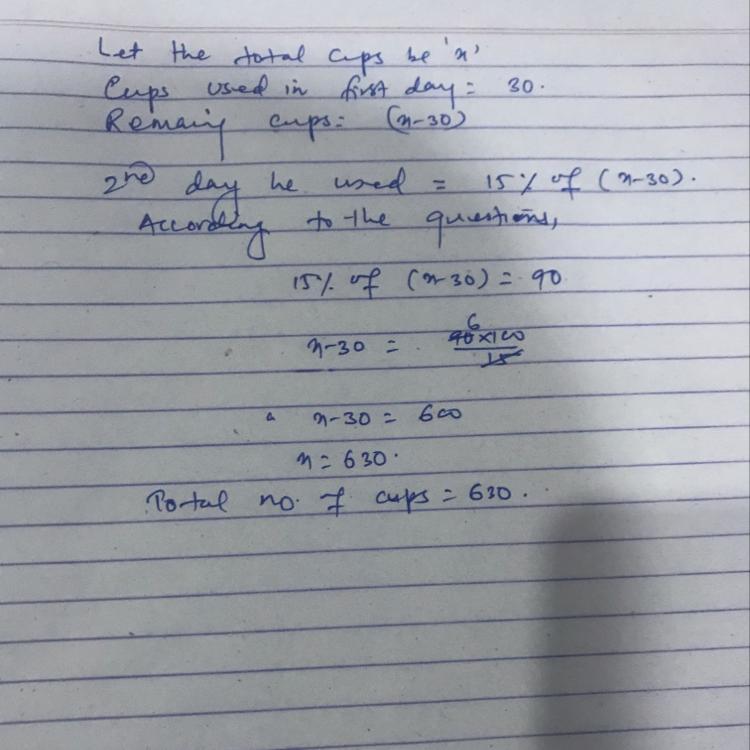 Let the total cups be 'x'
Cups used in first day = 30.
Remaing cups = (x-30)
2nd day he used = 15% of (x-30).
According to the questions,
15% of (x-30) = 90
6
x-30 = 90×100
15
x-30 = 600
x = 630.
Total no. of cups = 630.